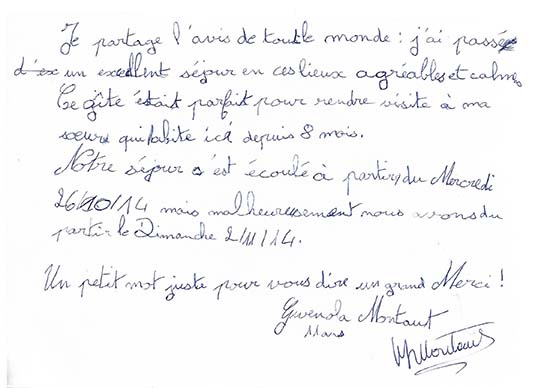 Je partage l'avis de tout le monde : j'ai passé
d'ex un excellent séjour en ces lieux agréables et calmes
Ce gîte était parfait pour rendre visite à ma
sœur qui habite ici depuis 8 mois.
Notre séjour s'est écoulé à partir du Mercredi
26/10/14 mais malheureusement nous avons du
partir le Dimanche 2/11/14.
Un petit mot juste pour vous dire un grand Merci !
Gwenola Montaut
Mans